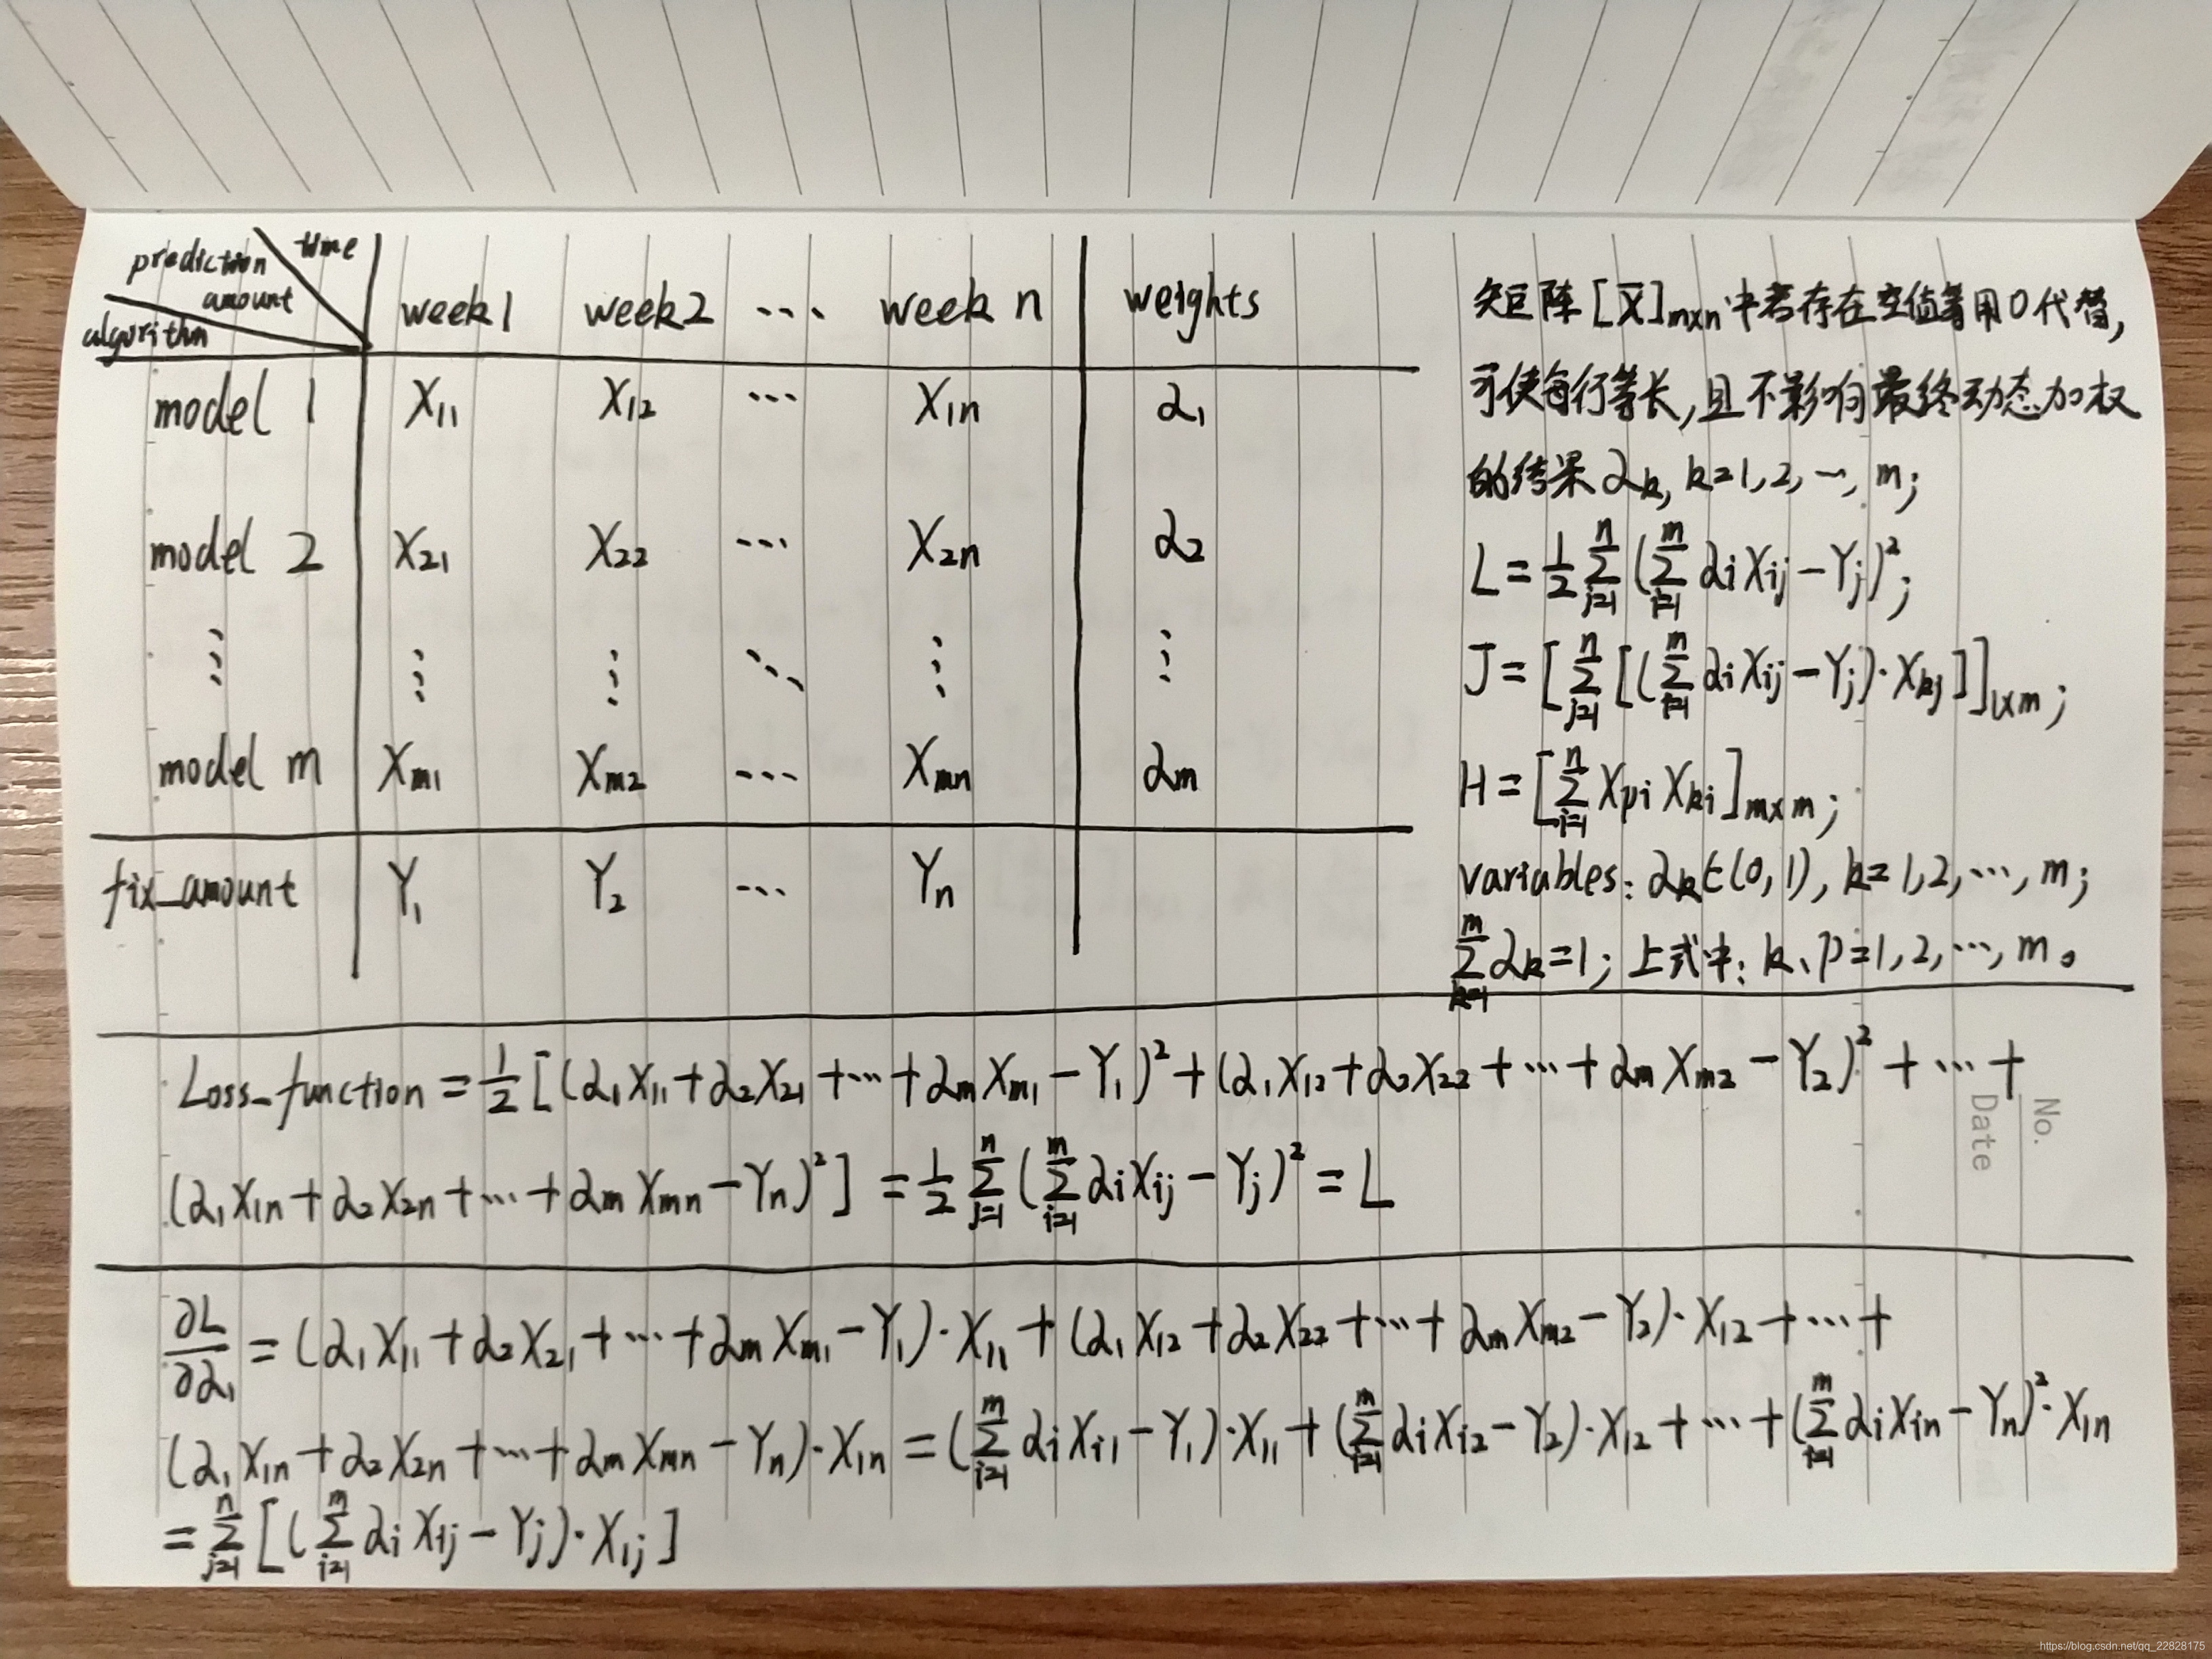 prediction amount time
algorithm week1 week2 ... week n weights
model 1 X₁₁ X₁₂ ... X₁ₙ α₁
model 2 X₂₁ X₂₂ ... X₂ₙ α₂
⋮ ⋮ ⋮ ⋱ ⋮ ⋮
model m Xₘ₁ Xₘ₂ ... Xₘₙ αₘ
fix_amount Y₁ Y₂ ... Yₙ
矩阵[X]ₘₓₙ中若存在空值等用0代替,
可使每行等长,且不影响最终动态加权
的结果αₖ, k=1,2,…,m;
L=½∑ⱼ₌₁ⁿ(∑ᵢ₌₁ᵐ αᵢXᵢⱼ-Yⱼ)²;
J=[∑ⱼ₌₁ⁿ[(∑ᵢ₌₁ᵐ αᵢXᵢⱼ-Yⱼ)·Xₖⱼ]]₁ₓₘ;
H=[∑ᵢ₌₁ⁿ Xₚᵢ Xₖᵢ]ₘₓₘ;
variables: αₖ∈(0,1), k=1,2,…,m;
∑ₖ₌₁ᵐ αₖ=1; 上式中: k、p=1,2,…,m。
Loss_function=½[(α₁X₁₁+α₂X₂₁+…+αₘXₘ₁-Y₁)²+(α₁X₁₂+α₂X₂₂+…+αₘXₘ₂-Y₂)²+…+
(α₁X₁ₙ+α₂X₂ₙ+…+αₘXₘₙ-Yₙ)²]=½∑ⱼ₌₁ⁿ(∑ᵢ₌₁ᵐ αᵢXᵢⱼ-Yⱼ)²=L
No.
Date
∂L/∂α₁=(α₁X₁₁+α₂X₂₁+…+αₘXₘ₁-Y₁)·X₁₁+(α₁X₁₂+α₂X₂₂+…+αₘXₘ₂-Y₂)·X₁₂+…+
(α₁X₁ₙ+α₂X₂ₙ+…+αₘXₘₙ-Yₙ)·X₁ₙ=(∑ᵢ₌₁ᵐ αᵢXᵢ₁-Y₁)·X₁₁+(∑ᵢ₌₁ᵐ αᵢXᵢ₂-Y₂)·X₁₂+…+(∑ᵢ₌₁ᵐ αᵢXᵢₙ-Yₙ)²·X₁ₙ
=∑ⱼ₌₁ⁿ[(∑ᵢ₌₁ᵐ αᵢXᵢⱼ-Yⱼ)·X₁ⱼ]
https://blog.csdn.net/qq_22828175